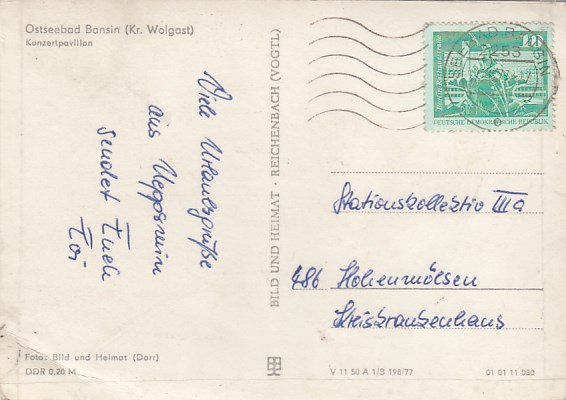 Ostseebad Bansin (Kr. Wolgast)
Konzertpavillon
Viele Urlaubsgrüße
aus
sendet Euch
BILD UND HEIMAT · REICHENBACH (VOGTL)
10
Berlin, Rathausstraße
DEUTSCHE DEMOKRATISCHE REPUBLIK
Stationskollektiv IIIa
486 Hohenmölsen
Kreiskrankenhaus
Foto: Bild und Heimat (Darr)
DDR 0,20 M
V 11 50 A 1/B 198/77
01 01 11 080